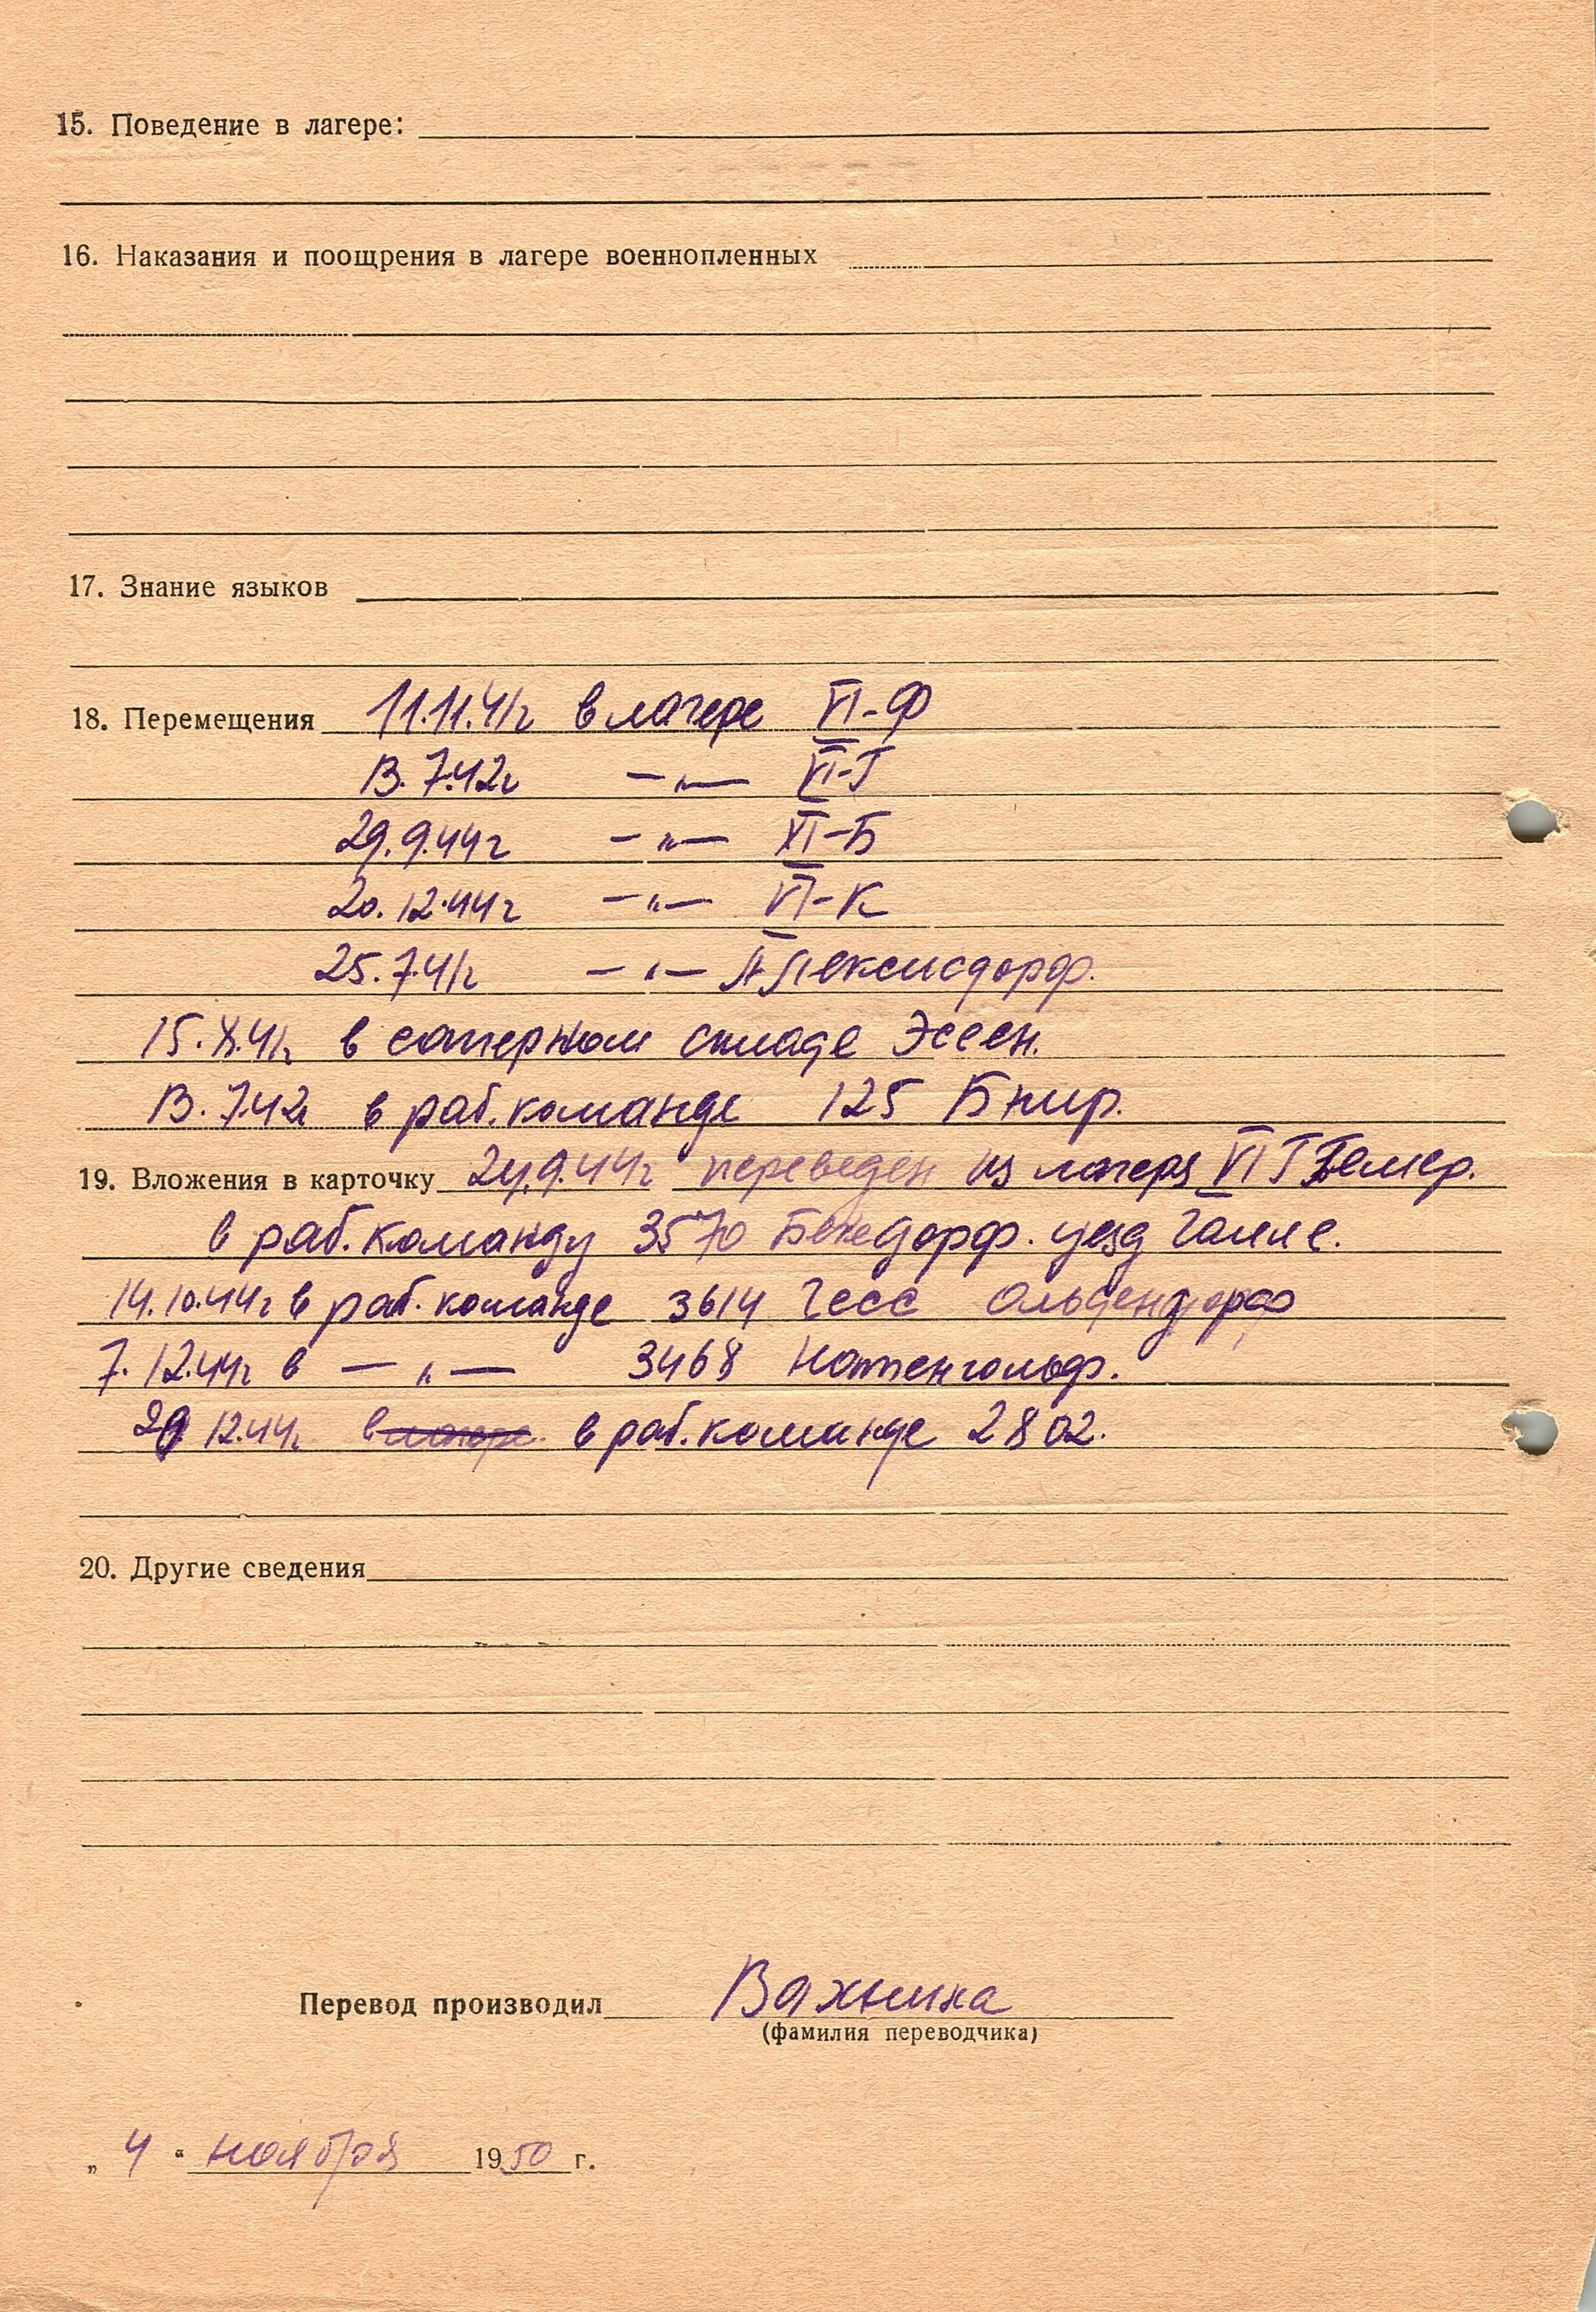 15. Поведение в лагере:
16. Наказания и поощрения в лагере военнопленных
17. Знание языков
18. Перемещения 11.11.41г в лагере VI-Ф
13.7.42г —„— VI-Г
29.9.44г —„— XI-Б
20.12.44г —„— VI-К
25.7.41г —„— Алексисдорф.
15.X.41г в саперном складе Эссен.
13.7.42г в раб. команде 125
19. Вложения в карточку 24.9.44г переведен из лагеря VI Г
в раб. команду 3570 Бекедорф. уезд Галле.
14.10.44г в раб. команде 3614 Гесс Ольдендорф
7.12.44г в —„— 3468
12.44г в раб. команде 2802.
20. Другие сведения
Перевод производил Вахнина
(фамилия переводчика)
„ 4 “ ноября 1950 г.